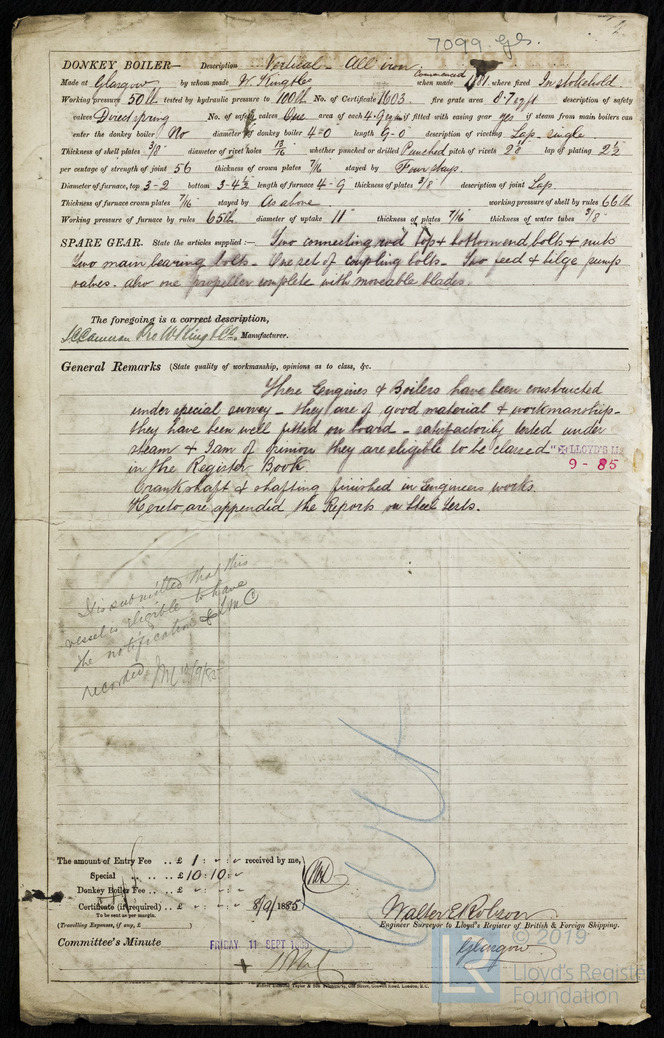 7099 Gls.
DONKEY BOILER— Description Vertical - All iron
Made at Glasgow by whom made W. King & Co Commenced when made 1881. where fixed In stokehold.
Working pressure 50 lb tested by hydraulic pressure to 100 lb No. of Certificate 1603. fire grate area 8.7 sq ft description of safety
valves Direct spring No. of safety valves One area of each 4.9 sq in if fitted with easing gear yes if steam from main boilers can
enter the donkey boiler No diameter of donkey boiler 4-0 length 9-0 description of riveting Lap, single
Thickness of shell plates 3/8" diameter of rivet holes 13/16 whether punched or drilled Punched pitch of rivets 2" lap of plating 2 1/2
per centage of strength of joint 56 thickness of crown plates 7/16 stayed by Four stays.
Diameter of furnace, top 3-2 bottom 3-4 1/2 length of furnace 4-9 thickness of plates 3/8" description of joint Lap.
Thickness of furnace crown plates 7/16" stayed by As above. working pressure of shell by rules 66 lb
Working pressure of furnace by rules 65 lb diameter of uptake 11" thickness of plates 7/16 thickness of water tubes 3/8"
SPARE GEAR. State the articles supplied:— Two connecting rod top & bottom end bolts & nuts
Two main bearing bolts - One set of coupling bolts - Two feed & bilge pump
valves - also one propeller complete with moveable blades.
The foregoing is a correct description,
Pro W King & Co. Manufacturer.
General Remarks (State quality of workmanship, opinions as to class, &c.
These Engines & Boilers have been constructed
under special survey - they are of good material & workmanship -
they have been well fitted on board - satisfactorily tested under
steam & I am of opinion they are eligible to be classed "✠ LLOYD'S
9 - 85
in the Register Book
Crank shaft & shafting finished in Engineers works.
Hereto are appended the Reports on Steel Tests.
It is submitted that this
vessel is eligible to have
the notification ✠ LMC
recorded 10/9/85
The amount of Entry Fee .. £ 1 : - : - received by me,
Special .. .. £ 10 : 10 : -
Donkey Boiler Fee .. £ - : - : -
Certificate (if required) .. £ - : - : - 8/9/1885
To be sent as per margin.
(Travelling Expenses, if any, £ )
Walter E Robson
Engineer Surveyor to Lloyd's Register of British & Foreign Shipping.
Committee's Minute FRIDAY 11 SEPT 1885
Glasgow
+ LMC
© 2019
Lloyd's Register
Foundation
LR